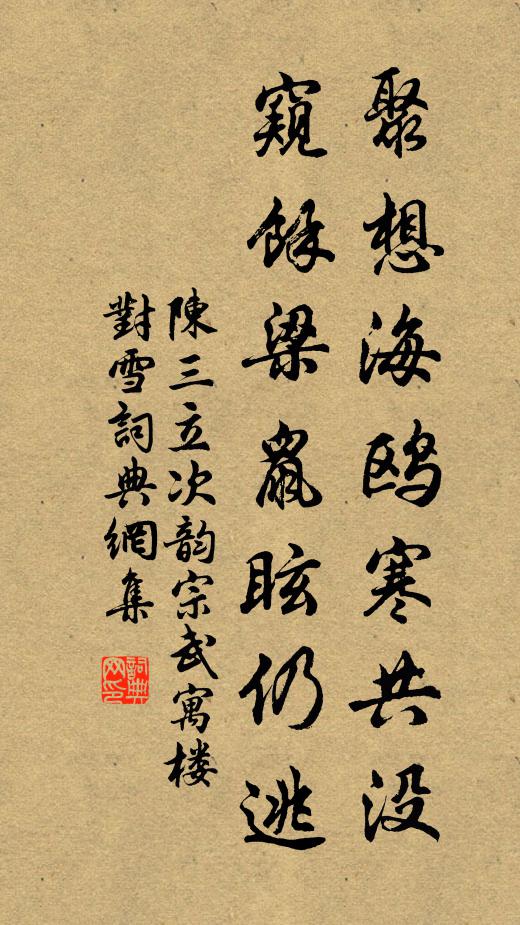 聚想海鸥寒共没
窥餘梁鼠眩仍逃
陳三立次韵宗武寓楼
對雪詞典網集
詞典网印